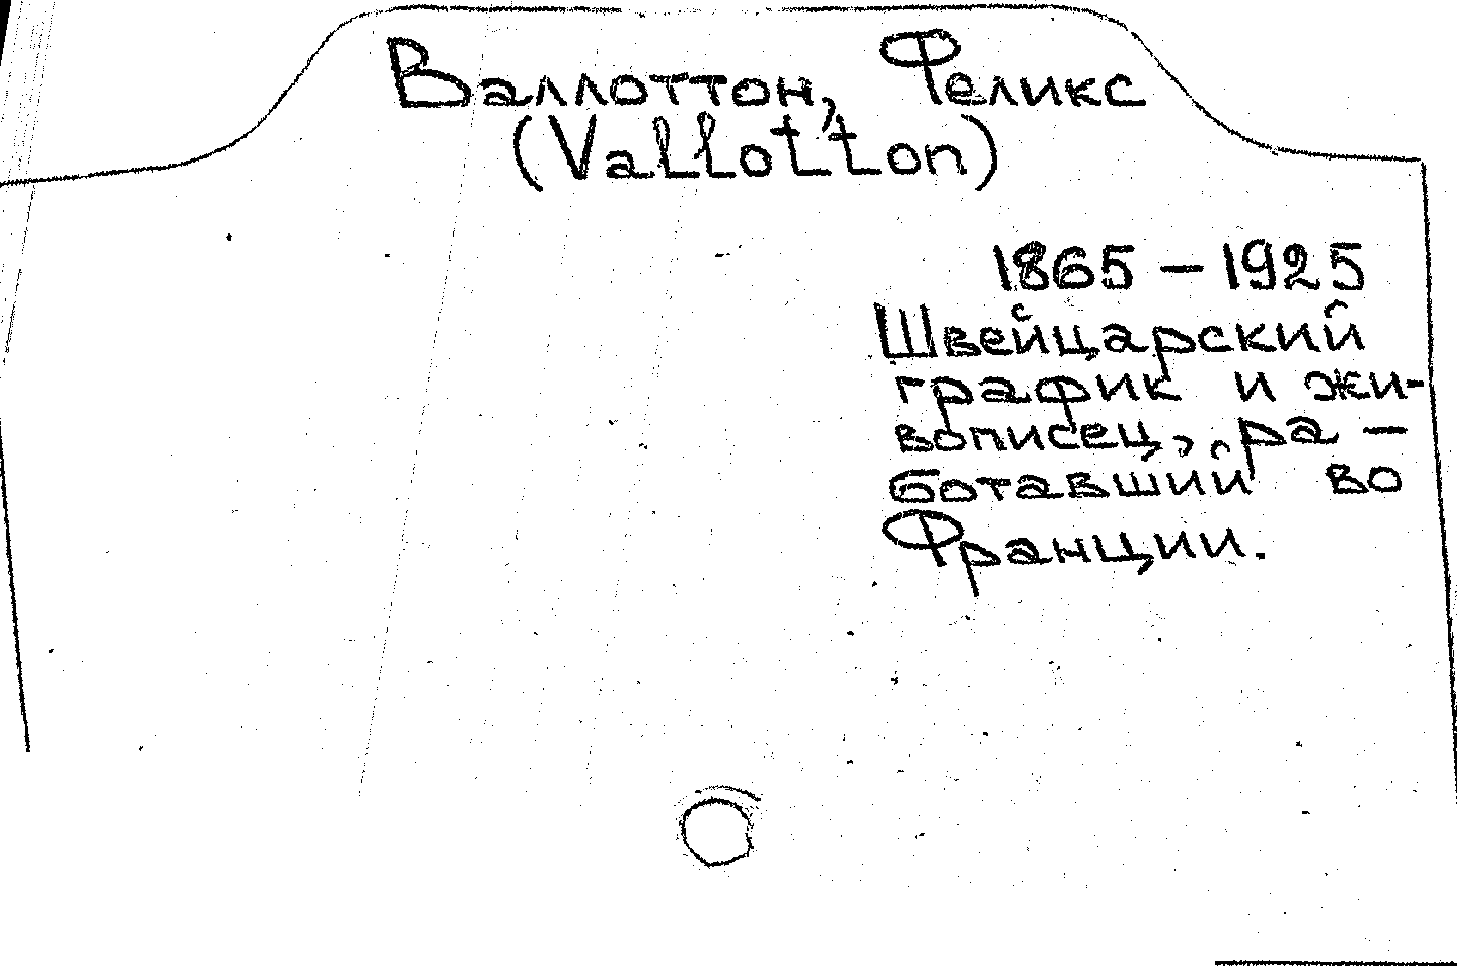 Валлоттон, Феликс
(Vallotton)
1865 – 1925
Швейцарский
график и жи-
вописец, ра –
ботавший во
Франции.